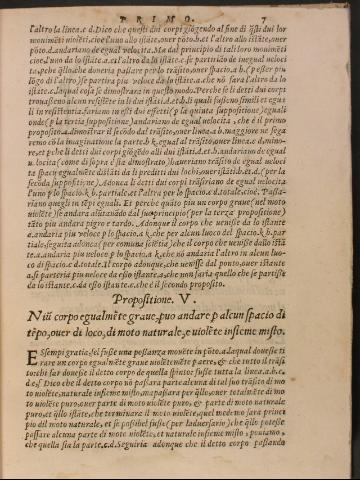 PRIMO. 7
l'altro la linea.c d. Dico che questi dui corpi giõgendo al fine di q̃sti dui lor
mouimẽti violẽti, cioe l'uno allo istãte.b. ouer põto.b. et l'altro allo istãte, ouer
põto.d. andariano de egual velocita. Ma dal principio di tali loro mouimẽti
cioe l'uno da lo istãte.a. et l'altro da lo istãte.c. se partirião de inegual veloci
ta,
go di.c.a se partira piu veloce da lo istãte.a. che nõ sara l'altro da lo
istãte.c. laqual cosa se dimostrara in questo modo. Perche se li detti dui corpi
trouasseno alcun resistẽte in li dui istãti.d.et.b. li quali fusseno simili et egua
li in resistentia. fariano in essi dui effetti (p la quinta suppositione) equali
onde (p la terza suppositione) andariano de egual velocita, che è il primo
proposito. a dimostrar il secõdo dal trãsito, ouer linea.a b. maggiore ne sega
remo cõ la imaginatione la parte.b k. egual al trãsito, ouer linea.c d. mino-
re, et pche li detti dui corpi giõgẽdo alli dui istãti.d.et.b. andariano de egua
velocita (come di sopra è sta dimostrato) haueriano trãsito de egual veloci
ta spacij egualmẽte distãti da li preditti dui lochi, ouer istãti.b.et.d. (per la
secõda suppositione) Adonca li detti dui corpi trãsiriano de egual velocita.
l'uno p lo spacio.k b. partiale, et l'altro per lo spacio.c d. totale, cioè. Passa-
riano quegli in tẽpi eguali. Et perche quãto piu un corpo graue (nel moto
violẽte) se andara alũtanãdo dal suo principio (per la terza propositione)
tãto piu andara pigro e tardo. Adonque il corpo che uenisse da lo istante
a. andaria piu veloce p lo spacio.a k. che per alcun luoco del spacio.k b. par
tiale. seguita adonca (per comuna sciẽtia) che il corpo che uenisse dallo istã
te.a. andaria piu veloce p lo spacio.a k. che nõ andaria l'altro in alcun luo-
co di spacio.c d. totale. Il corpo adonque, che uenisse dal ponto, ouer istante
a. si parteria piu veloce da esso istante.a. che non faria quello che se partisse
da lo istante.c. da esso istante.c. che è il secondo proposito.
Propositione. V.
Niũ corpo egualmẽte graue, puo andare p alcun spacio di
tẽpo, ouer di loco, di moto naturale, e uiolẽte insieme misto.
Essempi gratia, sel fusse una possanza mouẽte in põto.a. laqual douesse ti
rare un corpo egualmẽte graue uiolẽtemẽte p aere, & che tutto il trãsi
to: chi far douesse il detto corpo de quella spinto: fusse tutta la linea.a b. c.
d. e. Dico che il detto corpo nõ passara parte alcuna di tal suo trãsito di mo
to violẽte, naturale insieme misto, ma passara per quello, ouer totalmẽte di mo
to violẽte puro, ouer parte di moto violẽte puro, & parte di moto naturale
puro, et q̃llo istãte, che terminara il moto violẽte, quel medemo sara princi
pio dil moto naturale, et se possibel fusse (per laduersario) che q̃llo potesse
passare alcuna parte di moto violẽte, et naturale insieme misto, poniamo,
che quella sia la parte.c d. Seguiria adonque che il detto corpo passando